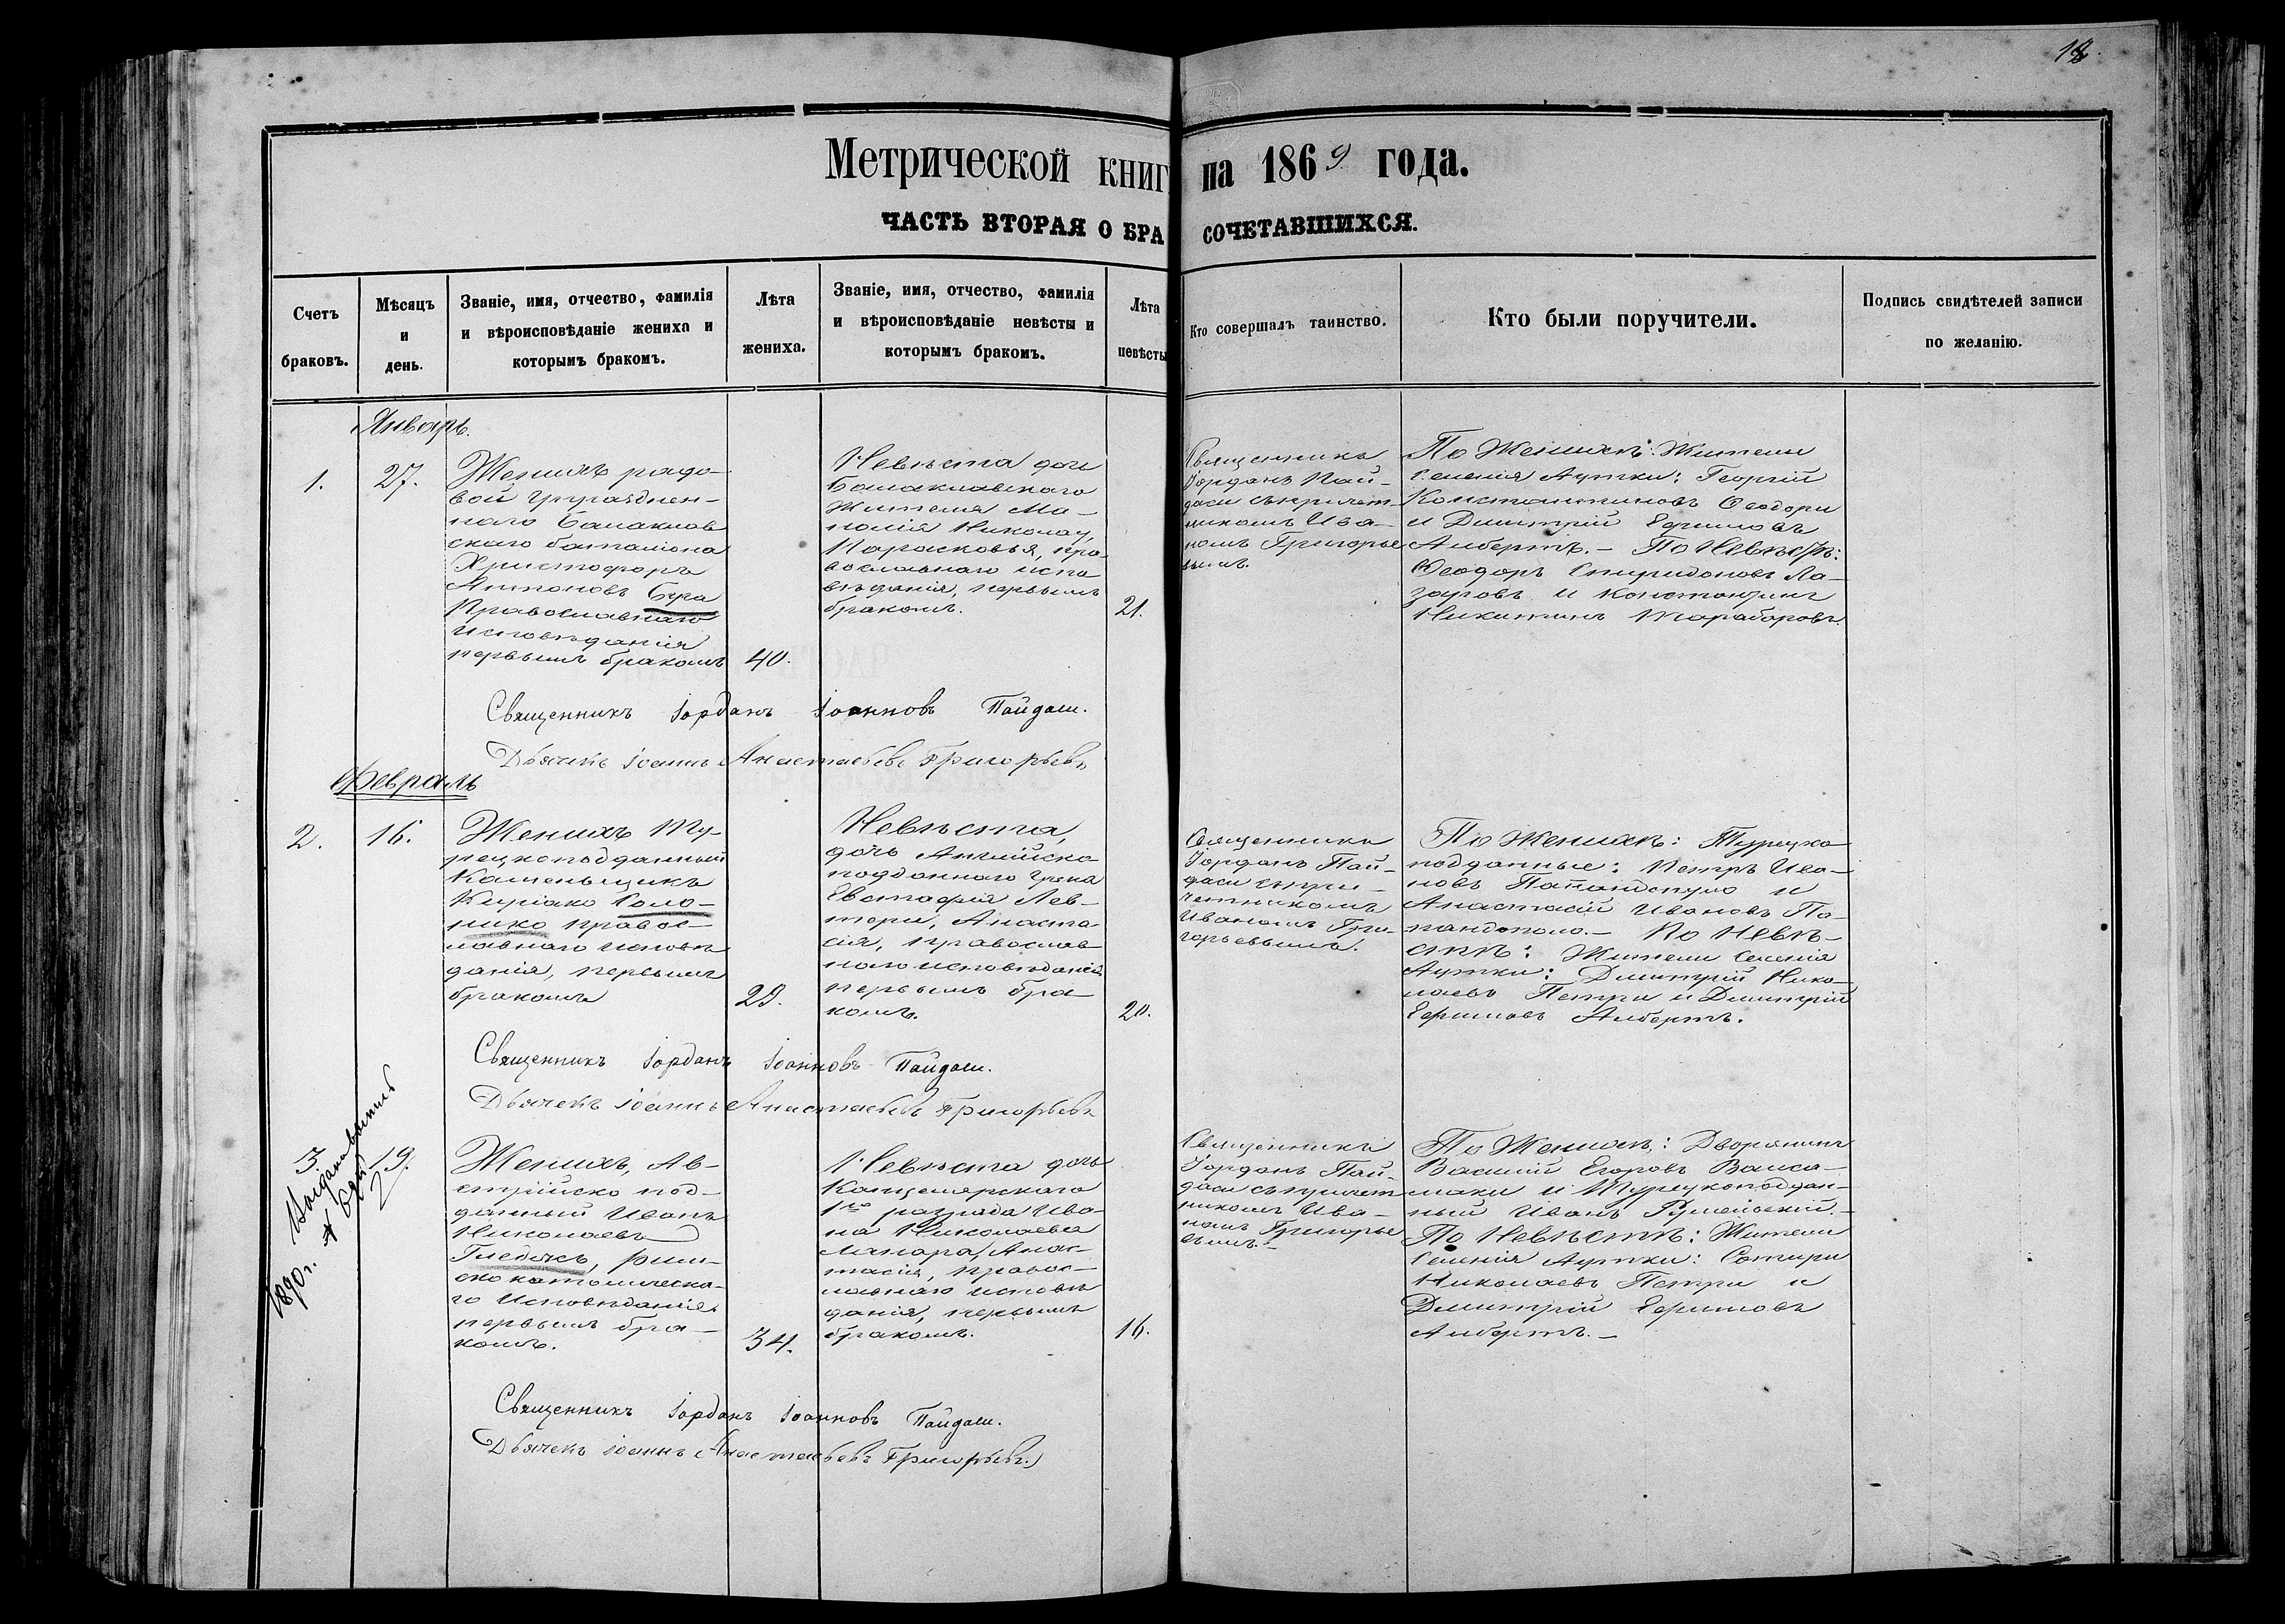 18
Метрической книг на 1869 года.
ЧАСТЬ ВТОРАЯ О БРА СОЧЕТАВШИХСЯ.
Счетъ
браковъ.
Мѣсяцъ
и
день.
Званіе, имя, отчество, фамилія
и вѣроисповѣданіе жениха и
которымъ бракомъ.
Лѣта
жениха.
Званіе, имя, отчество, фамилія
и вѣроисповѣданіе невѣсты и
которымъ бракомъ.
Лѣта
невѣсты
Кто совершалъ таинство.
Кто были поручители.
Подпись свидѣтелей записи
по желанію.
Январь.
1.
27.
Женихъ рядо-
вой упразднен-
наго Балаклав
скаго баталіона
Христофоръ
Антоновъ Бура
Православнаго
исповѣданія
первымъ бракомъ
40.
Невѣста дочь
Балаклавскаго
Жителя Ма-
нолія Николау,
Парасковья, пра-
вославнаго испо
вѣданія, первымъ
бракомъ.
21.
Священникъ
Іорданъ Пай-
даси съ причет-
никомъ Ива-
номъ Григорье
вымъ.
По Женихѣ: Жители
Селенія Аутки: Георгій
Константиновъ Феодори
и Дмитрій Ефимовъ
Албертъ. — По Невѣстѣ:
Феодоръ Спиридоновъ Ла-
заровъ и Константинъ
Никитинъ Тараборовъ.
Священникъ Іорданъ Іоанновъ Пайдаси.
Дьячекъ Іоаннъ Анастасьевъ Григорьевъ
Февраль
2.
16.
Женихъ Ту-
рецкоподданный
Каменьщикъ
Киріако Голо-
нико правос-
лавнаго исповѣ
данія, первымъ
бракомъ
29.
Невѣста,
дочь Англійско
подданнаго Грека
Евстафія Лев-
тери, Анаста-
сія, православ
наго исповѣданія
первымъ бра-
комъ.
20.
Священникъ
Іорданъ Пай-
даси съ при-
четникомъ
Иваномъ Гри-
горьевымъ.
По Женихѣ: Турецко
подданные: Петръ Ива-
новъ Папандопуло и
Анастасій Ивановъ Па-
пандополо. — По Невѣ-
стѣ: Жители Селенія
Аутки: Дмитрій Нико-
лаевъ Петри и Дмитрій
Ефимовъ Албертъ.
Священникъ Іорданъ Іоанновъ Пайдаси.
Дьячекъ Іоаннъ Анастасьевъ Григорьевъ
3.
19.
1890 г.
Женихъ, Ав-
стрійско под-
данный Иванъ
Николаевъ
Гледичъ, рим-
ско католическа-
го Исповѣданія,
первымъ бра-
комъ.
34.
Невѣста дочь
Канцелярскаго
1го разряда Ива-
на Николаева
Анас-
тасія, правос-
лавнаго исповѣ
данія, первымъ
бракомъ.
16.
Священникъ
Іорданъ Пай-
даси съ причет
никомъ Ива-
номъ Григорье
вымъ. —
По Женихѣ: Дворянинъ
Василій Егоровъ Валса-
маки и Турецкоподдан-
ный Иванъ Румельскій. —
По Невѣстѣ: Жители
Селенія Аутки: Сотири
Николаевъ Петри и
Дмитрій Ефимовъ
Албертъ. —
Священникъ Іорданъ Іоанновъ Пайдаси.
Дьячекъ Іоаннъ Анастасьевъ Григорьевъ.